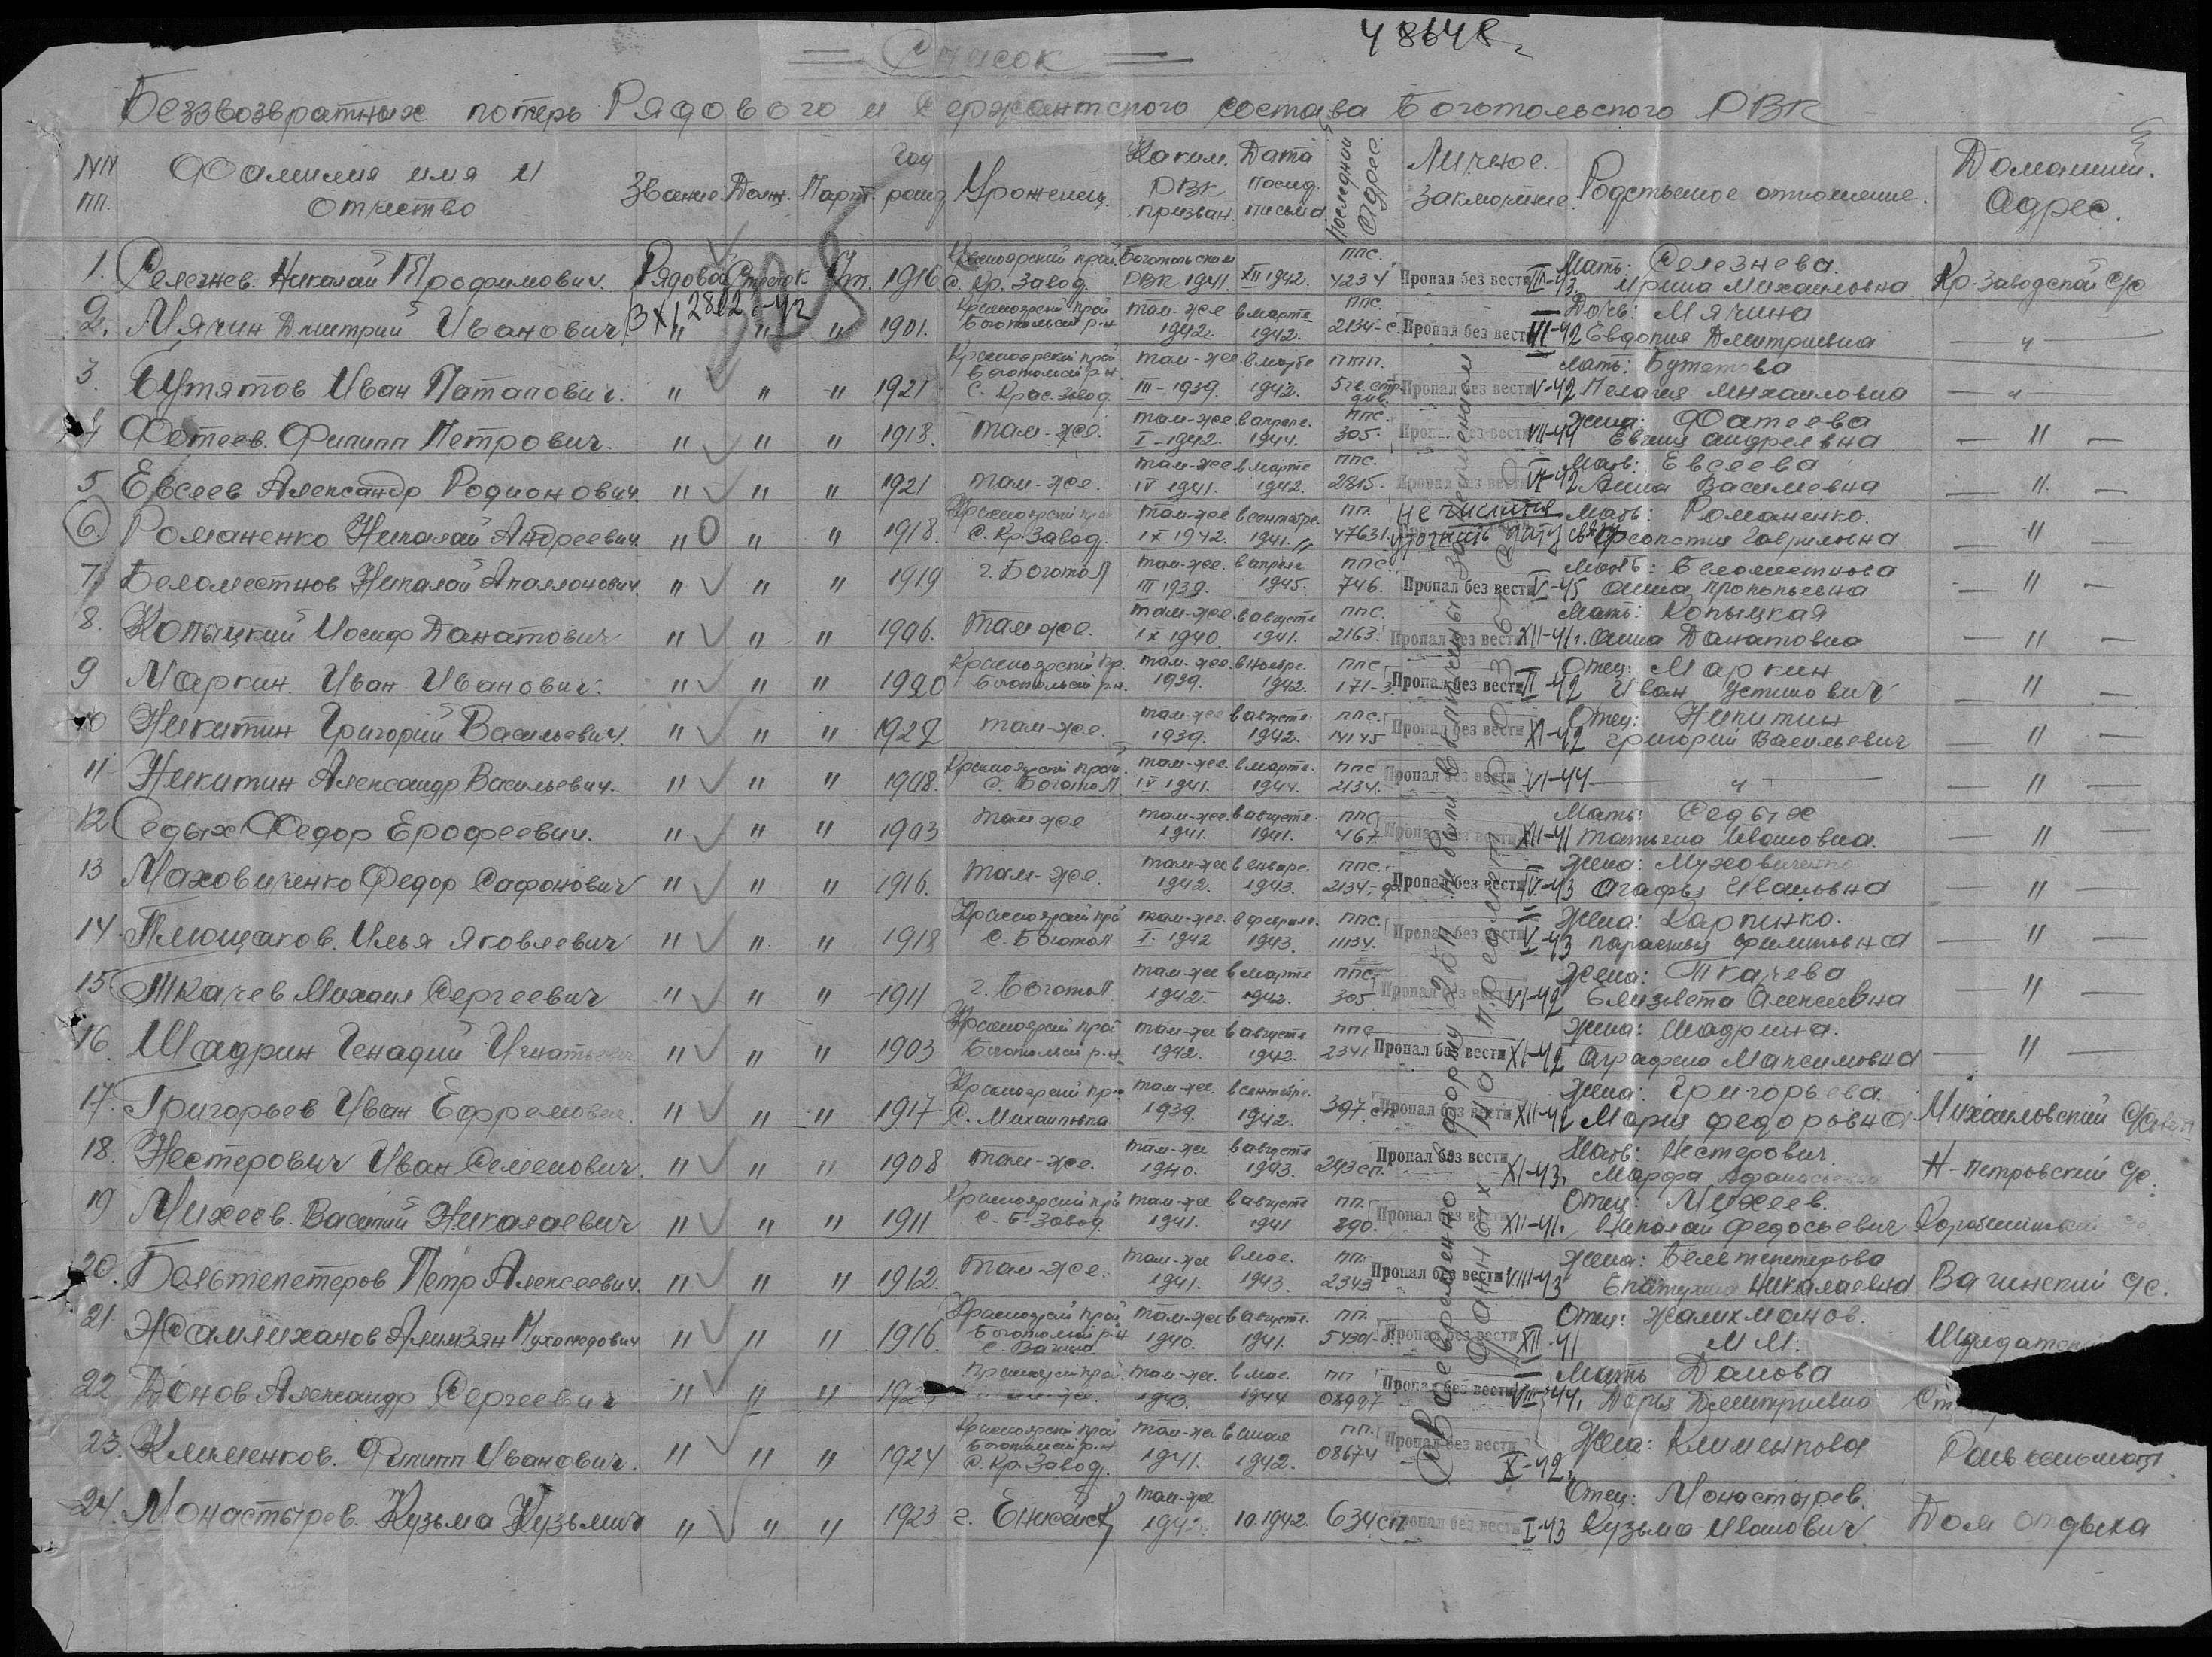 48648
Список
Беззвозвратных потерь Рядового и Сержантского состава Боготольского РВК
NN пп. Фамилия имя и отчество Звание Долж. Парт. Год рожд Уроженец Каким РВК призван. Дата послед. письма Последний адрес Личное заключение Родственое отношение. Домашний. Адрес.
1. Селезнев. Николай Трофимович. Рядовой Стрелок 1916 Красноярский край с. Кр. Завод. Боготольским РВК 1941. XII 1942. ппс. 4234 Пропал без вести III-43 Мать: Селезнева. Ирина Михайловна Кр. Заводской с/с
2. Мячин Дмитрий Иванович " " 1901. Красноярский край Боготольский р-н там-же 1942. в марте 1942. ппс. 2134-с. Пропал без вести VI-42 Дочь: Мячина Евдокия Дмитриевна — " —
3. Бутятов Иван Патапович. " " " 1921 Красноярский край Боготольский р-н с. Крас. Завод. там-же III-1939. 1942. Пропал без вести V-42 Мать: Бутятова Пелагея Михайловна — " —
4 Фотеев. Филипп Петрович. " " " 1913. там-же. там-же I-1942. в апреле. 1944. ппс. 305. Пропал без вести VII-44 Жена: Фатеева Евгния Андреевна — " —
5 Евсеев Александр Родионович " " " 1921 там-же. там-же IV 1941. в марте 1942. ппс. 2815. Пропал без вести VI-42 Мать: Евсеева Анна Васильевна — " —
6. Романенко Николай Андреевич. " О " " 1918. Красноярский край с. Кр. Завод. там-же IX 1942. в сентябре. 1941. пп. 47631. не числится уточнить дату связи Мать: Романенко. Гавриловна — " —
7. Беломестнов Николай Аполлонович. " " " 1919 г. Боготол там-же. III 1939. в апреле 1945. ппс. 746. Пропал без вести V-45 Мать: Беломестнова Анна Прокопьевна — " —
8. Копыцкий Иосиф Данатович " " " 1906. там же. там-же. IX 1940. в августе 1941. ппс. 2163. Пропал без вести XII-41г. Мать: Копыцкая Анна Донатовна — " —
9 Маркин. Иван Иванович. " " " 1920 Красноярский кр. Боготольский р-н. там-же. 1939. в ноябре. 1942. ппс 171-3. Пропал без вести II-42 Отец: Маркин Иван Устинович — " —
10 Никитин Григорий Васильевич. " " " 1922 там-же. там-же 1939. в августе. 1942. ппс. 14145 Пропал без вести XI-42 Отец: Никитин Григорий Васильевич — " —
11 Никитин Александр Васильевич. " " " 1908. Красноярский край. с. Боготол. там-же. IV 1941. в марте. 1944. ппс 2134. Пропал без вести VI-44 — " — — " —
12 Седых Федор Ерофеевич. " " " 1903 там же там-же. 1941. в августе. 1941. ппс 467 Пропал без вести XII-41 Мать: Седых Татьяна Ивановна. — "
13 Маховиченко Федор Сафонович " " " 1916. там-же. там-же 1942. в январе. 1943. ппс. 2134- Пропал без вести IV-43 Жена: Муховиченко Агафья Ивановна — " —
14. Плющаков. Илья Яковлевич " " " 1918 Красноярский край с. Боготол там-же. I. 1942 в феврале. 1943. ппс. 11134. Пропал без вести V-43 Жена: Карпинко. Парасковья Филиповна — " —
15. Ткачев Михаил Сергеевич " " " 1911 г. Боготол там-же 1942. в марте 1942. ппс. 305 Пропал без вести VI-42 Жена: Ткачева Елизовета Алексеевна — " —
16. Шадрин Генадий Игнатьевич " " " 1903 Красноярский край Боготольский р-н там-же 1942. в августе 1942. ппс 2341 Пропал без вести XI-42 Жена: Шадрина. Аграфена Максимовна — " —
17. Григорьев Иван Ефремович. " " " 1917 Красноярский край с. Михайловка там-же. 1939. в сентябре. 1942. 397 сп. Пропал без вести XII-42 Жена: Григорьева. Мария Федоровна Михайловский с/совет
18. Нестерович Иван Семенович. " " " 1908 там-же. там-же 1940. в августе 1943. 243 сп. Пропал без вести XI-43. Мать: Нестерович. Марфа Афанасьевна Н-Петровский с/с.
19 Михеев. Василий Николаевич " " " 1911 Красноярский край с. Б-Завод. там-же 1941. в августе 1941 пп. 890. Пропал без вести XII-41. Отец: Михеев. Николай Федосьевич
20. Бельтепетеров Петр Алексеевич. " " " 1912. там-же. там-же 1941. в мае. 1943 пп. 2343 Пропал без вести VIII-43 Жена: Бельтепетерова Екатерина Николаевна Вагинский с/с.
21. Жамлиханов Алимзян Мухомедович " " " 1916. Красноярский край Боготольский р-н с. Вагино там-же 1940. в августе. 1941. пп. Пропал без вести XII-41 Отец: Жамихманов. М М.
22 Донов Александр Сергеевич " " " Красноярский край. там-же. 1943. в мае. 1944 пп 08927 Пропал без вести VIII-44. Мать Данова Дарья Дмитриевна
23. Клименков. Филипп Иванович. " " " 1924 Красноярский край Боготольский р-н с. Кр. Завод. там-же 1941. 1942. пп. 08674 Пропал без вести X-42. Жена: Клименкова
24. Монастырев. Кузьма Кузьмич " " " 1923 г. Енисейск там-же 10.1942. 634 сп Пропал без вести I-43 Отец: Монастырев. Кузьма Иванович Дом отдыха